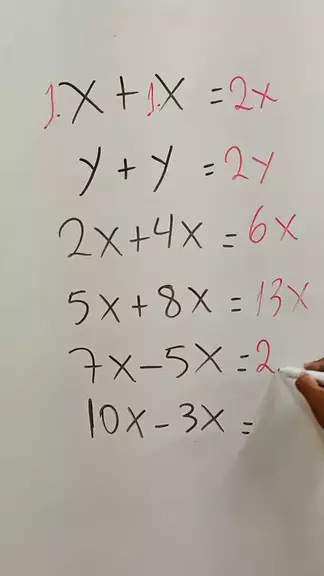 1.x + 1.x = 2x
y + y = 2y
2x + 4x = 6x
5x + 8x = 13x
7x - 5x = 2
10x - 3x =